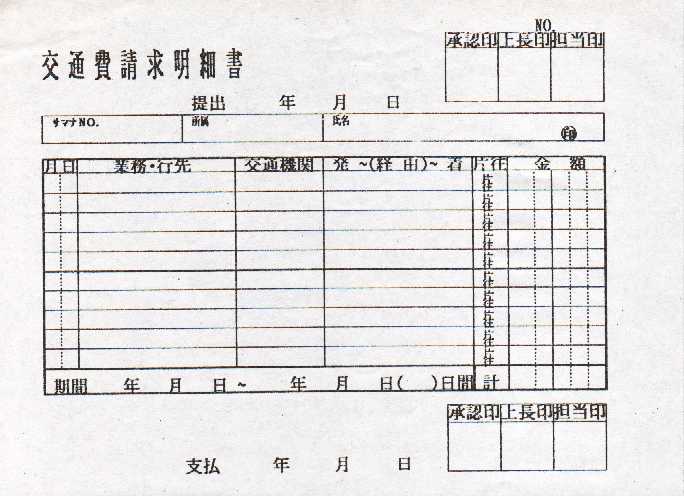 NO.
承認印 上長印 担当印
交通費請求明細書
提出 年 月 日
サマナNO. 所属 氏名
印
月 日 業務・行先 交通機関 発 ~(経 由)~ 着 片往 金 額
片往
片往
片往
片往
片往
片往
片往
片往
片往
片往
期間 年 月 日 ~ 年 月 日( )日間 計
承認印 上長印 担当印
支払 年 月 日